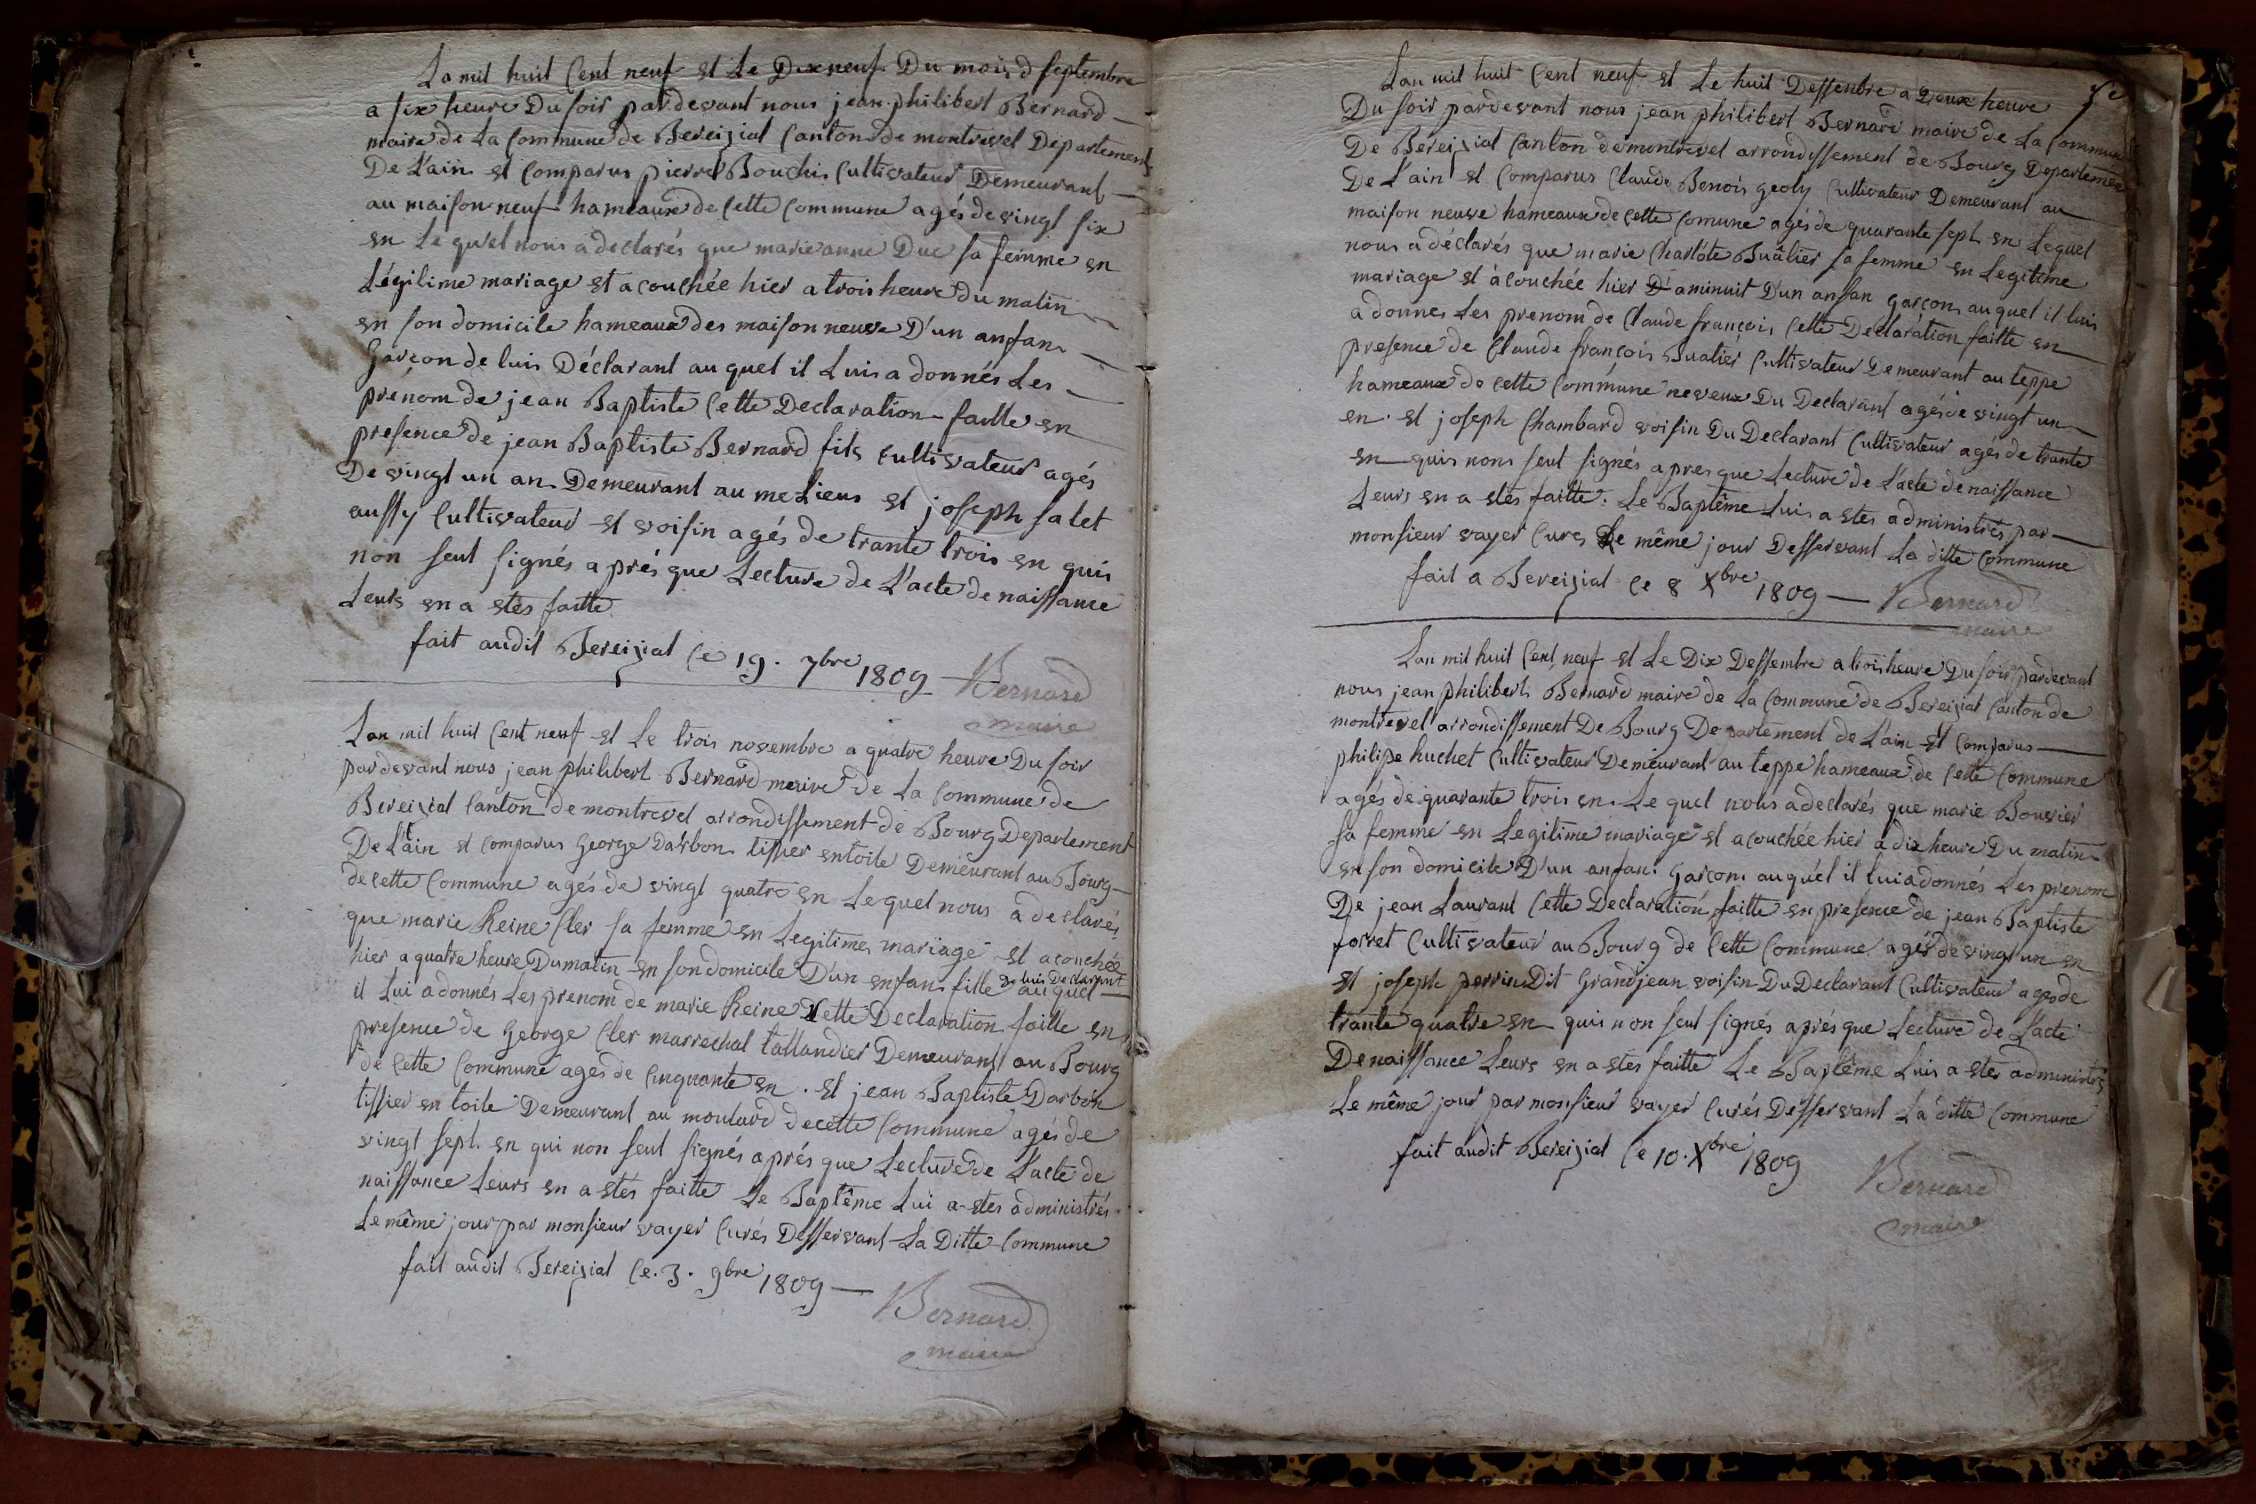 La mil huit Cent neuf et Le Dix neuf Du mois d septembre
a six heure Du soir pardevant nous jean philibert Bernard
maire de La Commune de Bereizial Canton de montrevel Departement
De L'ain et Comparus pierre Bouchi Cultivateur Demeurant
au maison neuf hameaux de Cette Commune agés de vingt six
en Le quel nous a declarés que marie anne Duc sa femme en
Légitime mariage et acouchée hier a trois heure Du matin
en son domicile hameaux des maison neuve D'un anfan
Garcon de luis Déclarant auquel il Luis a donnés Les
prénom de jean Baptiste Cette Declaration faitte en
presence de jean Baptiste Bernard fils Cultivateur agés
De vingt un an Demeurant au me Lieux et joseph salet
aussy Cultivateur et voisin agés de trante trois en quis
non seut signés aprés que Lecture de L'acte de naissance
Leurs en a etés faitte
fait audit Bereizial Ce 19. 7bre 1809 Bernard
maire
Lan mil huit Cent neuf et Le trois novembre a quatre heure Du soir
pardevant nous jean philibert Bernard maire De La Commune de
Bereizial Canton de montrevel arrondissement de Bourg Departement
De L'ain et Comparus George Darbon tissier en toile Demeurant au Bourg
de Cette Commune agés de vingt quatre en Le quel nous a declarés
que marie Reine Cler sa femme en Legitime mariage et acouchée
hier a quatre heure Du matin en son domicile D'un enfan fille de luis Declarant auquel
il Lui a donnés Les prenom de marie Reine Cette Declaration faitte en
presence de George Cler marrechal tallandier Demeurant au Bourg
de Cette Commune agés de Cinquante en . et jean Baptiste Darbon
tissier en toile Demeurant au moutard de Cette Commune agés de
vingt sept en qui non seut signés aprés que Lecture de L'acte de
naissance Leurs en a etés faitte Le Baptême Lui a etes administrés
Le même jour par monsieur vayer Curés Desservant La Ditte Commune
fait audit Bereizial Ce. 3. 9bre 1809
Bernard
maire
Lan mil huit Cent neuf et Le huit Dessenbre a Deux heure
Du soir pardevant nous jean philibert Bernard maire de La Commune
De Bereizial Canton de montrevel arrondissement de Bourg Departement
De L'ain et Comparus Claude Benois geoly Cultivateur Demeurant au
maison neuve hameaux de Cette Comune agés de quarante sept en Lequel
nous a déclarés que marie Charlote Buâtier sa femme en Legitime
mariage et àcouchée hier D'aminuit D'un anfan garçon auquel il luis
a donnes Les prenom de Claude françois Cette Declaration faitte en
presence de Claude françois Buatier Cultivateur Demeurant au teppe
hameaux de Cette Commune neveux Du Declarant agés de vingt un
en . et joseph Chambard voisin Du Declarant Cultivateur agés de trante
en quis nons seut signés apres que Lecture de L'acte de naissance
Leurs en a etés faitte . Le Baptême Luis a etes administrés par
monsieur vayer Cures Le même jour Desservant La ditte Commune
fait a Bereizial Ce 8 Xbre 1809 Bernard
maire
Lan mil huit Cent neuf et Le Dix Dessembre a trois heure Du soir pardevant
nous jean philibert Bernard maire de La Commune de Bereizial Canton de
montrevel arrondissement De Bourg Departement de L'ain et Comparus
philipe huchet Cultivateur Demeurant au teppe hameaux de Cette Commune
agés de quarante trois en. Le quel nous a declarés que marie Bouvier
sa femme en Legitime mariage et acouchée hier a dix heure Du matin
en son domicile D'un anfan Garcon auquel il luis a donnés Les prenom
De jean Laurant Cette Declaration faitte en presence de jean Baptiste
foivet Cultivateur au Bourg de Cette Commune agés de vingt un en
et joseph perrin Dit Grandjean voisin Du Declarant Cultivateur agés de
trante quatre en quis non seut signés aprés que Lecture de L'acte
De naissance Leurs en a etés faitte Le Baptême Luis a etes administrés
Le même jour par monsieur vayer Curés Desservant La ditte Commune
fait audit Bereizial Ce 10. Xbre 1809
Bernard
maire